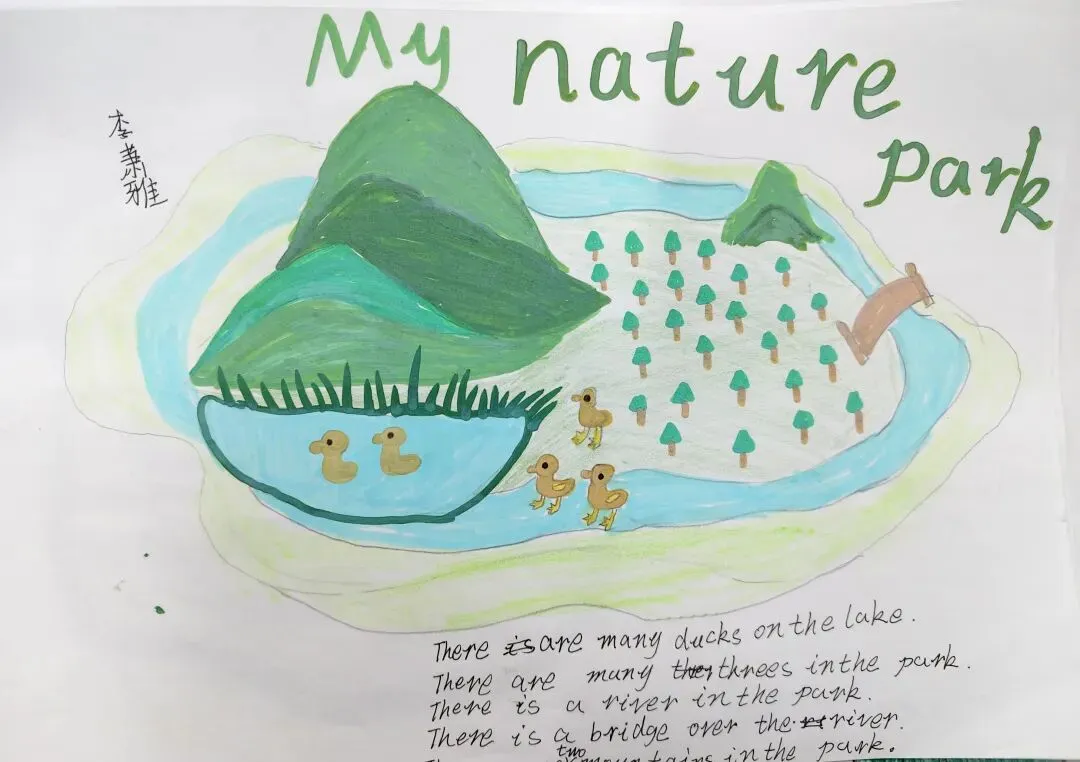 My nature
park
李萧雅
There is are many ducks on the lake.
There are many ther threes in the park.
There is a river in the park.
There is a bridge over the river.
two mountains in the park.